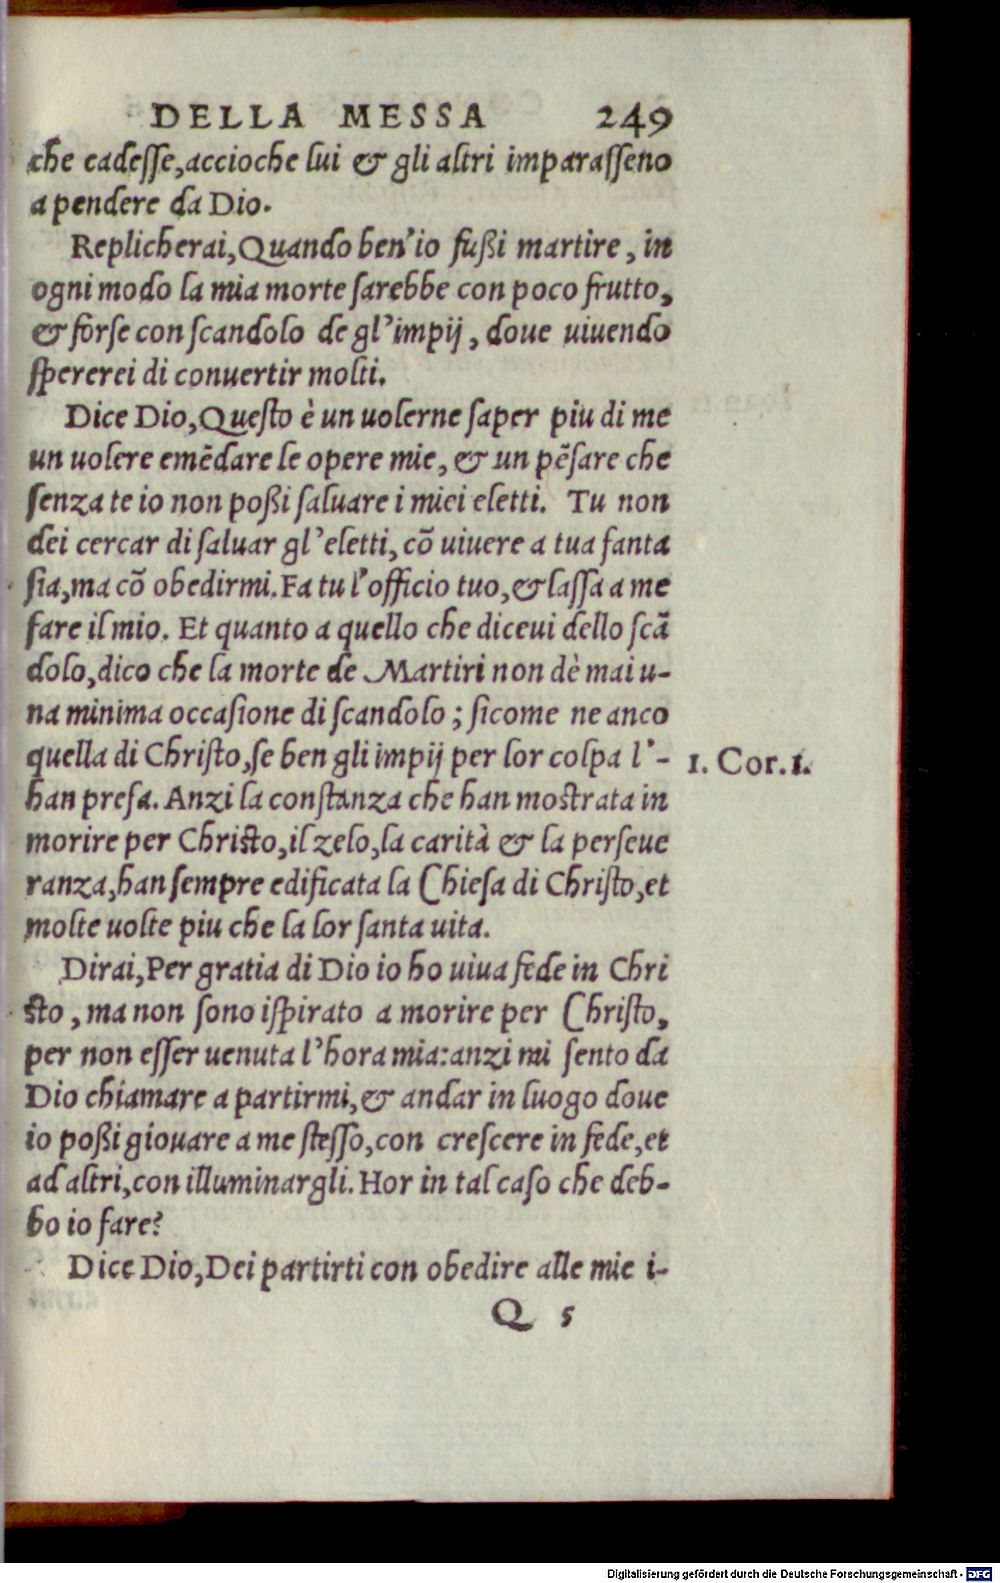 DELLA MESSA 249
che cadesse, accioche lui & gli altri imparasseno
a pendere da Dio.
Replicherai, Quando ben'io fußi martire, in
ogni modo la mia morte sarebbe con poco frutto,
& forse con scandolo de gl'impij, doue uiuendo
spererei di conuertir molti.
Dice Dio, Questo è un uolerne saper piu di me
un uolere emẽdare le opere mie, & un pẽsare che
senza te io non poßi saluare i miei eletti. Tu non
dei cercar di saluar gl'eletti, cõ uiuere a tua fanta
sia, ma cõ obedirmi. Fa tu l'officio tuo, & lassa a me
fare il mio. Et quanto a quello che diceui dello scã
dolo, dico che la morte de Martiri non dè mai u-
na minima occasione di scandolo; sicome ne anco
quella di Christo, se ben gli impij per lor colpa l'-
1. Cor. 1.
han presa. Anzi la constanza che han mostrata in
morire per Christo, il zelo, la carità & la perseue
ranza, han sempre edificata la Chiesa di Christo, et
molte uolte piu che la lor santa uita.
Dirai, Per gratia di Dio io ho uiua fede in Chri
sto, ma non sono ispirato a morire per Christo,
per non esser uenuta l'hora mia: anzi mi sento da
Dio chiamare a partirmi, & andar in luogo doue
io poßi giouare a me stesso, con crescere in fede, et
ad altri, con illuminargli. Hor in tal caso che deb-
bo io fare?
Dice Dio, Dei partirti con obedire alle mie i-
Q 5
Digitalisierung gefördert durch die Deutsche Forschungsgemeinschaft - DFG